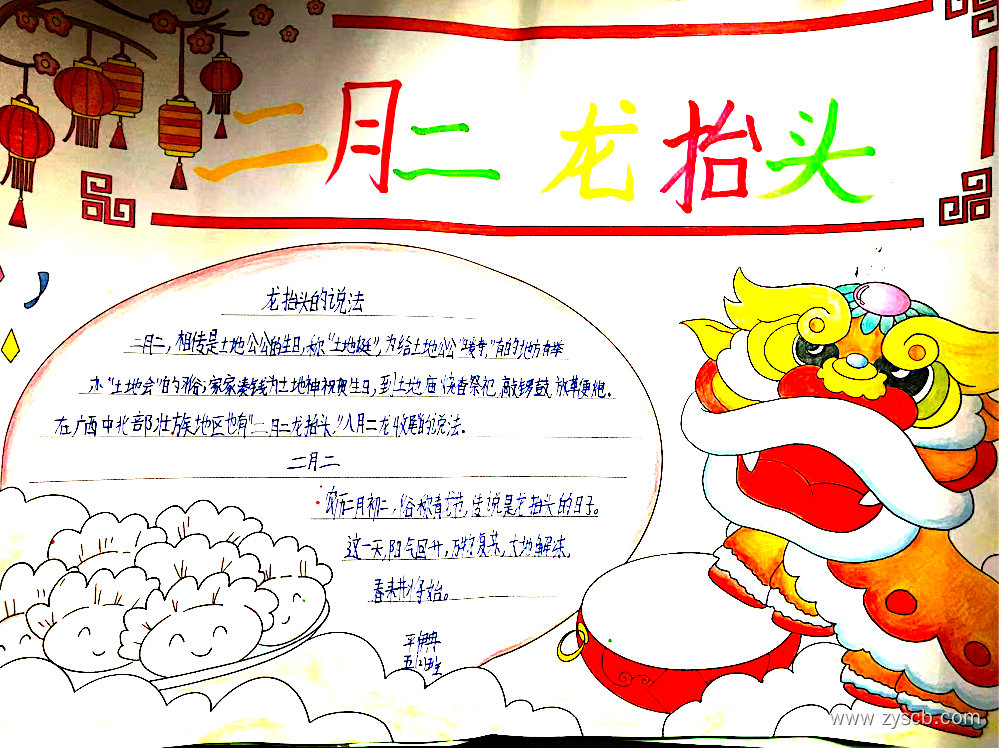 二月二 龙抬头
龙抬头的说法
二月二，相传是土地公公的生日，称"土地诞"，为给土地公公"暖寿"，有的地方有举
办"土地会"的习俗；家家凑钱为土地神祝贺生日，到土地庙烧香祭祀，敲锣鼓，放草便炮。
在广西中北部壮族地区也有"二月二龙抬头，"八月二龙收尾的说法。
二月二
农历二月初二，俗称青龙节，传说是龙抬头的日子。
这一天，阳气回升，万物复苏，大地解冻，
春耕将始。
五(2)班
www.zyscb.com